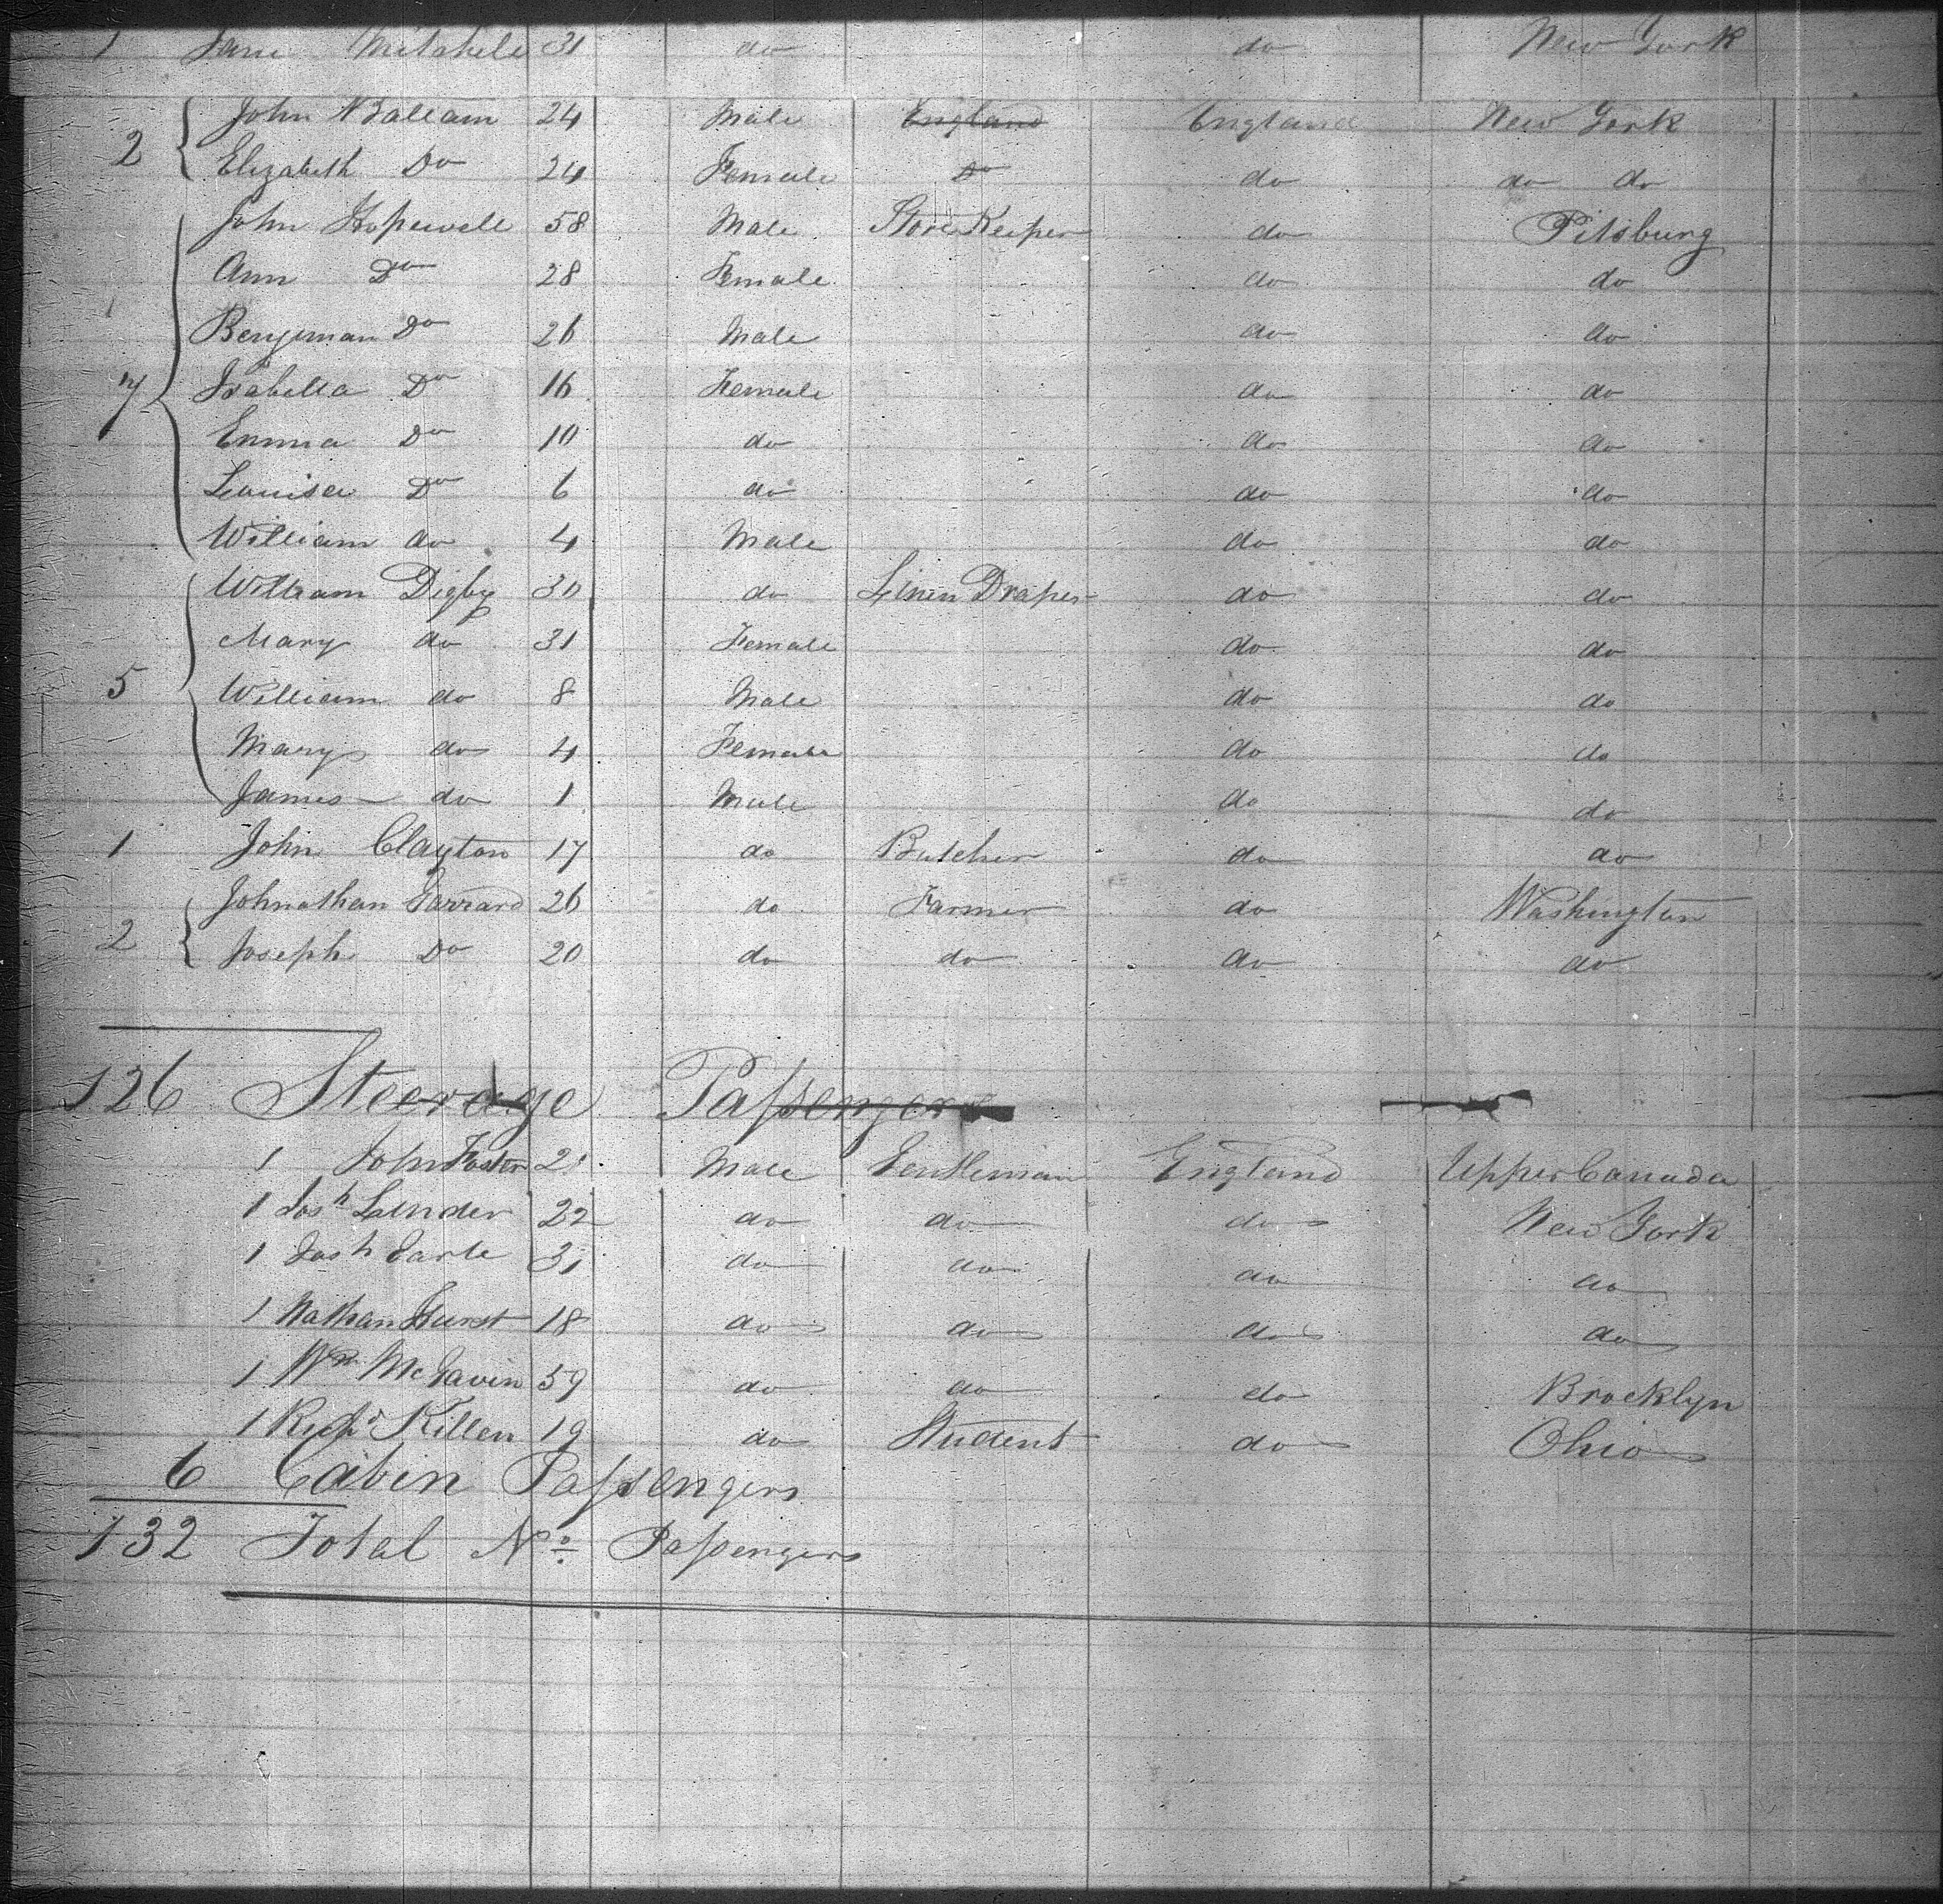 1 Jane Mitchele 31 do do New York
2 John Balleam 24 Male England England New York
Elizabeth Do 24 Female Do do do do
John Hopewell 58 Male Store Keeper do Pitsburg
Ann Do 28 Female do do
Benjeman Do 26 Male do do
7 Isabella Do 16 Female do do
Emma Do 10 do do do
Louisa Do 6 do do do
William do 4 Male do do
William Digby 30 do Linen Draper do do
Mary do 31 Female do do
5 William do 8 Male do do
Mary do 4 Female do do
James do 1 Male do do
1 John Clayton 17 do Butcher do do
Johnathan Garrard 26 do Farmer do Washington
2 Joseph Do 20 do do do do
126 Steerage Passengers
1 John Foster 21 Male Gentleman England Upper Canada
1 Josh Lunder 22 do do do New York
1 Josh Earle 31 do do do do
1 Nathan Hurst 18 do do do do
1 Wm McGavin 59 do do do Brocklyn
1 Richd Killen 19 do Student do Ohio
6 Cabin Passengers
132 Total No Passengers